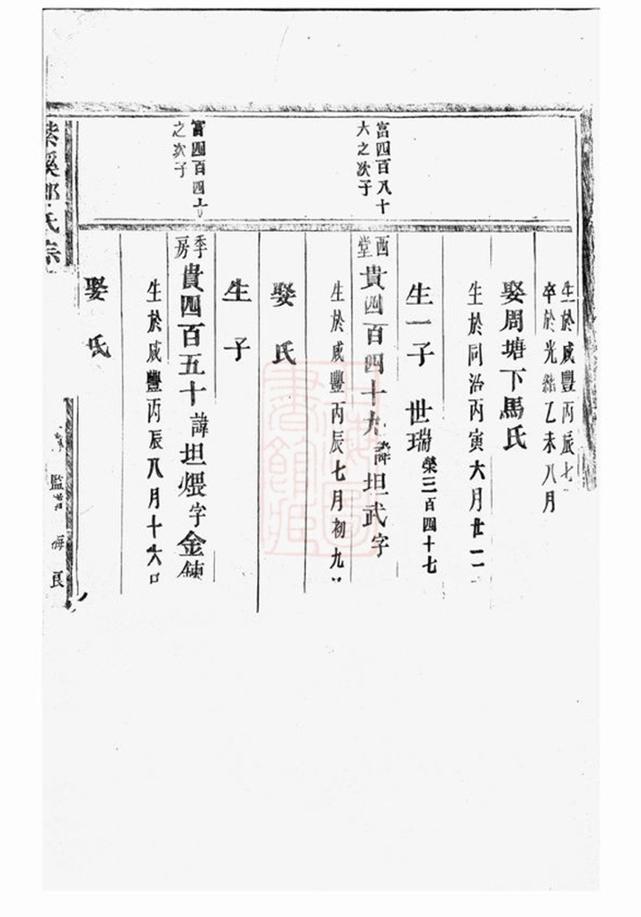 生於咸豐丙辰七
卒於光緒乙未八月
娶周塘下馬氏
生於同治丙寅六月廿二
生一子 世瑞 榮三百四十七
富四百八十
六之次子
西堂 貴四百四十九 諱坦武字
生於咸豐丙辰七月初九
娶氏
生子
富四百四
之次子
季房 貴四百五十 諱坦煨字金鍊
生於咸豐丙辰八月十六日
娶氏
紫溪 氏宗